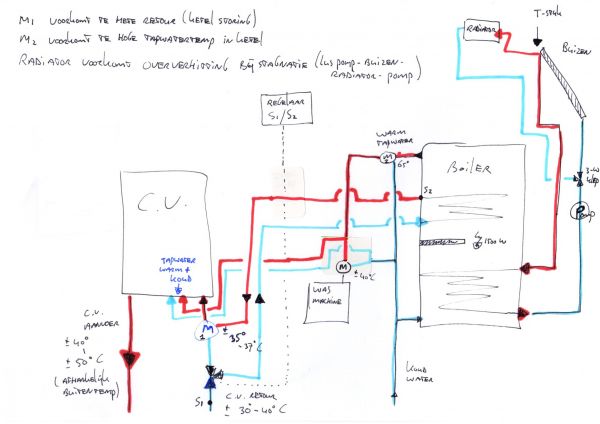 M1 VOORKOMT TE HETE RETOUR (KETEL STORING)
M2 VOORKOMT TE HOGE TAPWATERTEMP IN KETEL
RADIATOR VOORKOMT OVERVERHITTING BIJ STAGNATIE (LUS POMP-BUIZEN-
RADIATOR-POMP)
T-STUK
RADIATOR
BUIZEN
REGELAAR
S1/S2
WARM
TAPWATER
M
65°
BOILER
3-W
KLEP
POMP
S2
1500 W
C.V.
TAPWATER
WARM +
KOUD
M
± 40°C
WAS
MACHINE
M
1
± 35°
-37°C
C.V.
AANVOER
± 40°
± 50°C
(AFHANKELIJK
BUITENTEMP)
S1
C.V. RETOUR
± 30-40°C
KOUD
WATER